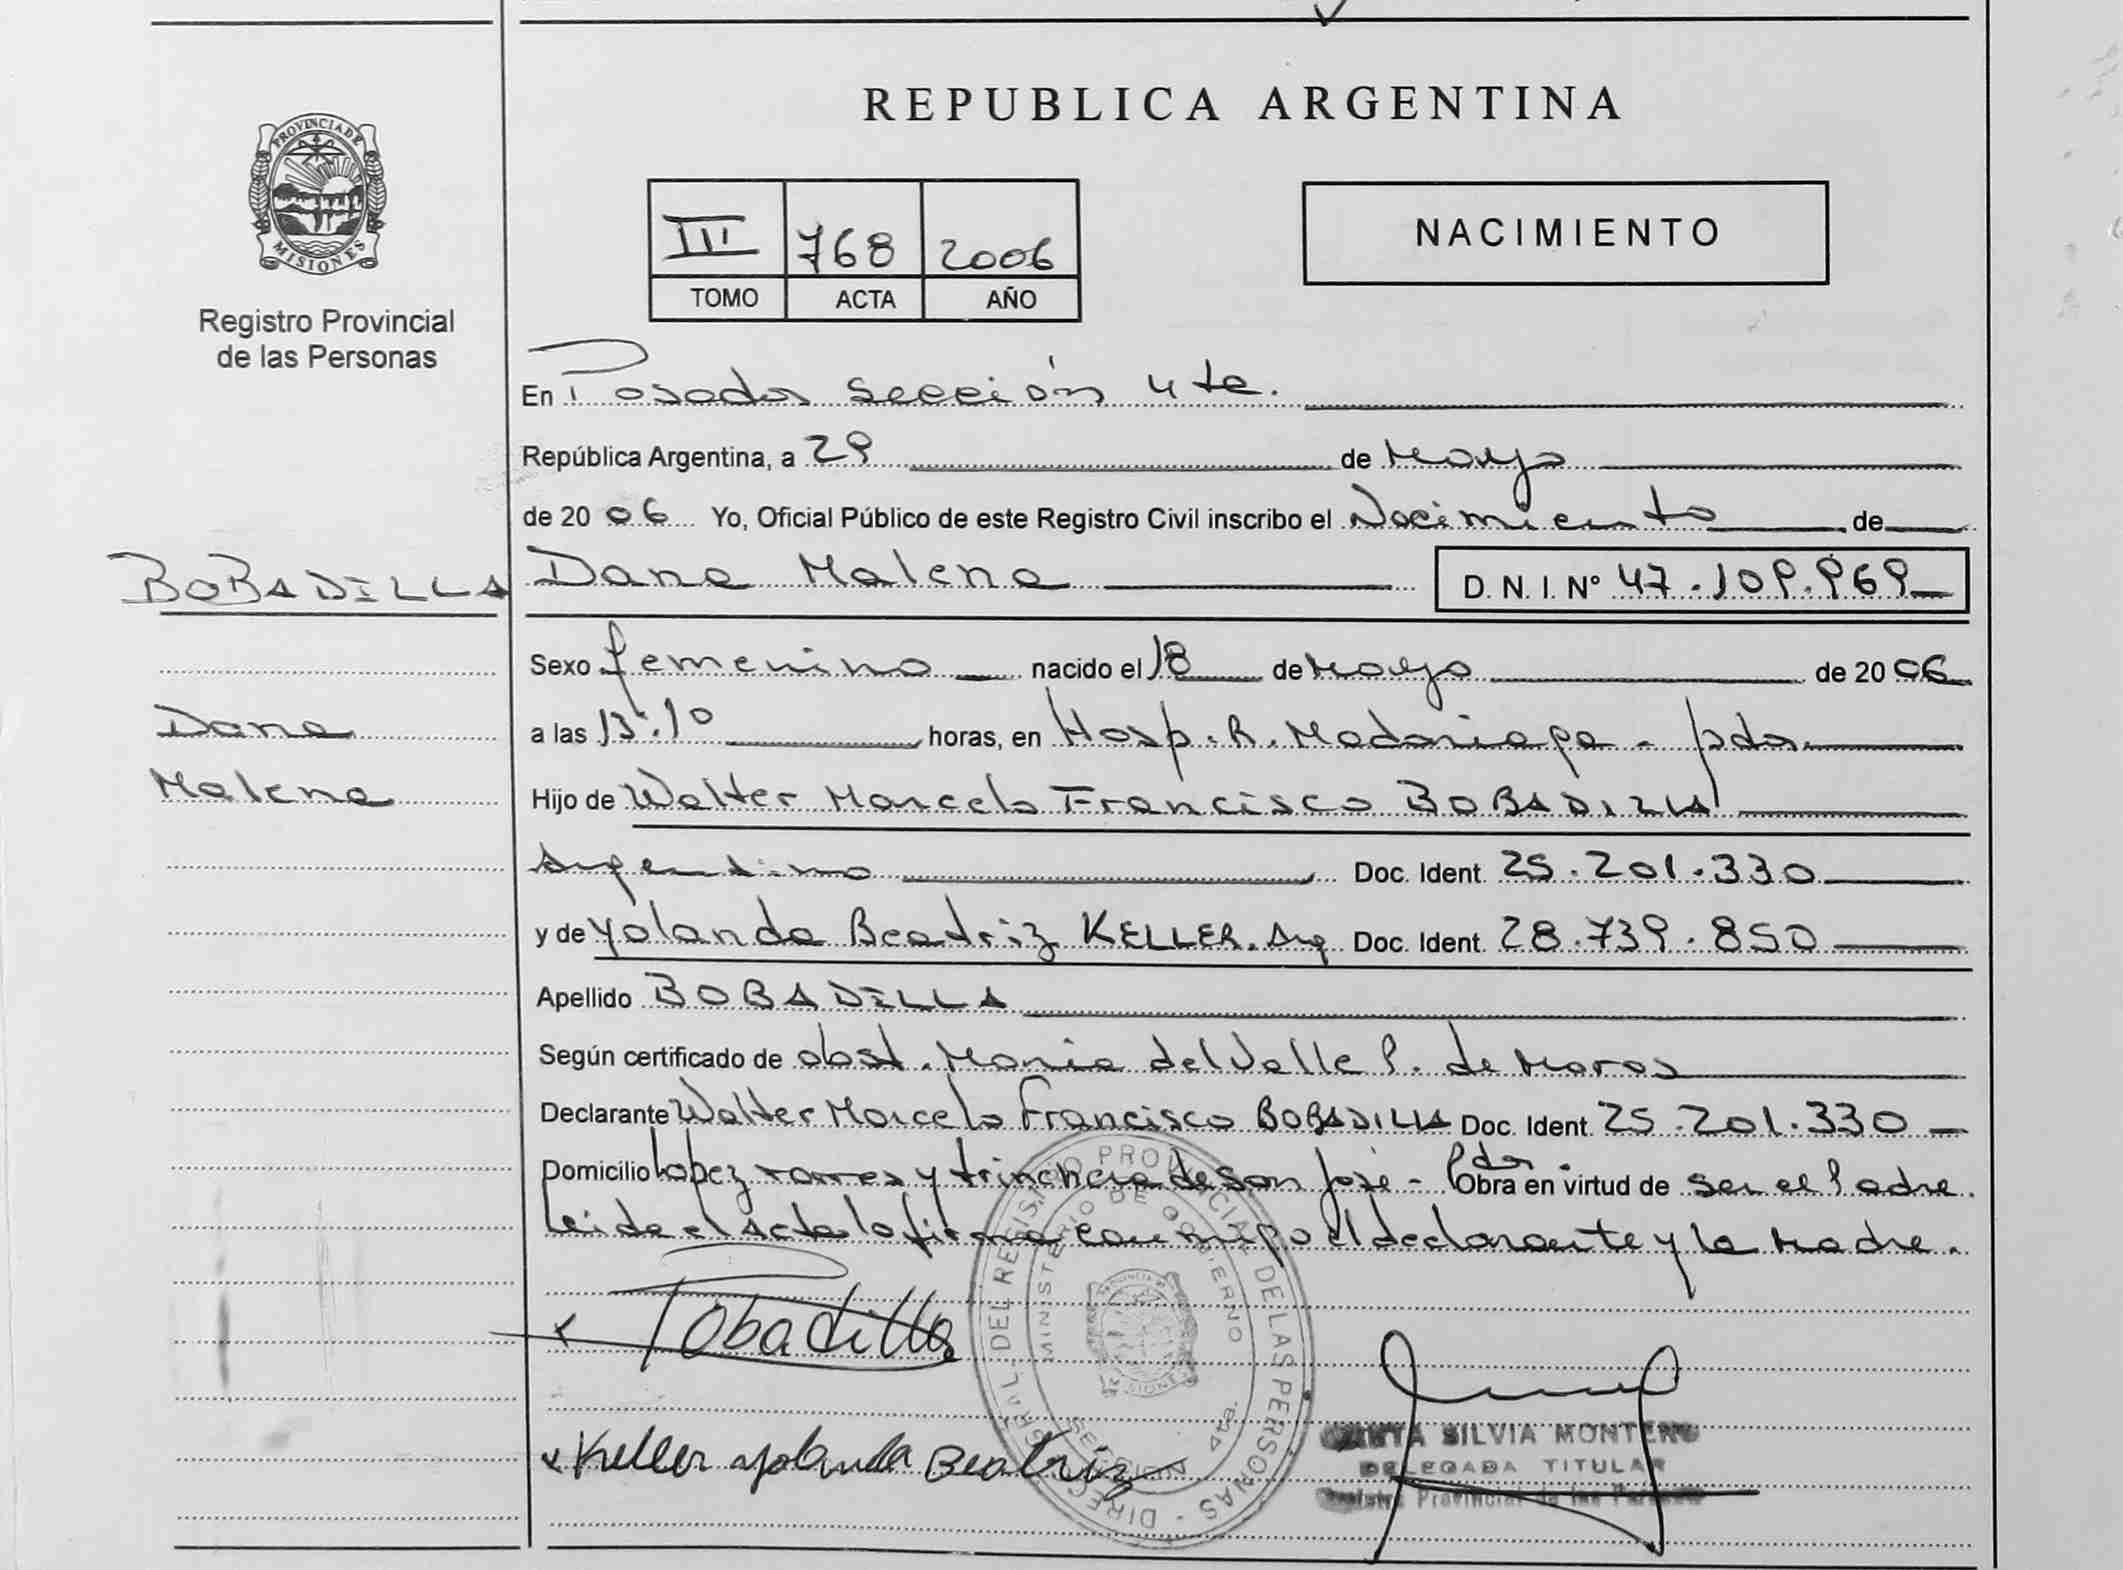 REPUBLICA ARGENTINA
PROVINCIA DE
MISIONES
Registro Provincial
de las Personas
III 768 2006
TOMO ACTA AÑO
NACIMIENTO
En Posadas sección 4ta.
República Argentina, a 29 de Mayo
de 2006 Yo, Oficial Público de este Registro Civil inscribo el Nacimiento de
BOBADILLA
Dana Malena D. N. I. Nº 47.109.969
Sexo femenino nacido el 18 de Mayo de 2006
Dana
Malena
a las 13:10 horas, en Hosp. R. Madariaga - Pdas.
Hijo de Walter Marcelo Francisco BOBADILLA
Argentino Doc. Ident. 25.201.330
y de Yolanda Beatriz KELLER. Arg Doc. Ident. 28.739.850
Apellido BOBADILLA
Según certificado de obst. Maria del Valle P. de Moros
Declarante Walter Marcelo Francisco BOBADILLA Doc. Ident. 25.201.330
Domicilio Lopez Torres y trinchera de San José - Pdas. Obra en virtud de ser el Padre.
Leida el Acta la firma conmigo el declarante y la Madre.
Bobadilla
Keller Yolanda Beatriz
DIRECC GRAL. DEL REGISTRO PROVINCIAL DE LAS PERSONAS
MINISTERIO DE GOBIERNO
SECCION 4ta.
SILVIA MONTERO
DELEGADA TITULAR
Registro Provincial de las Personas